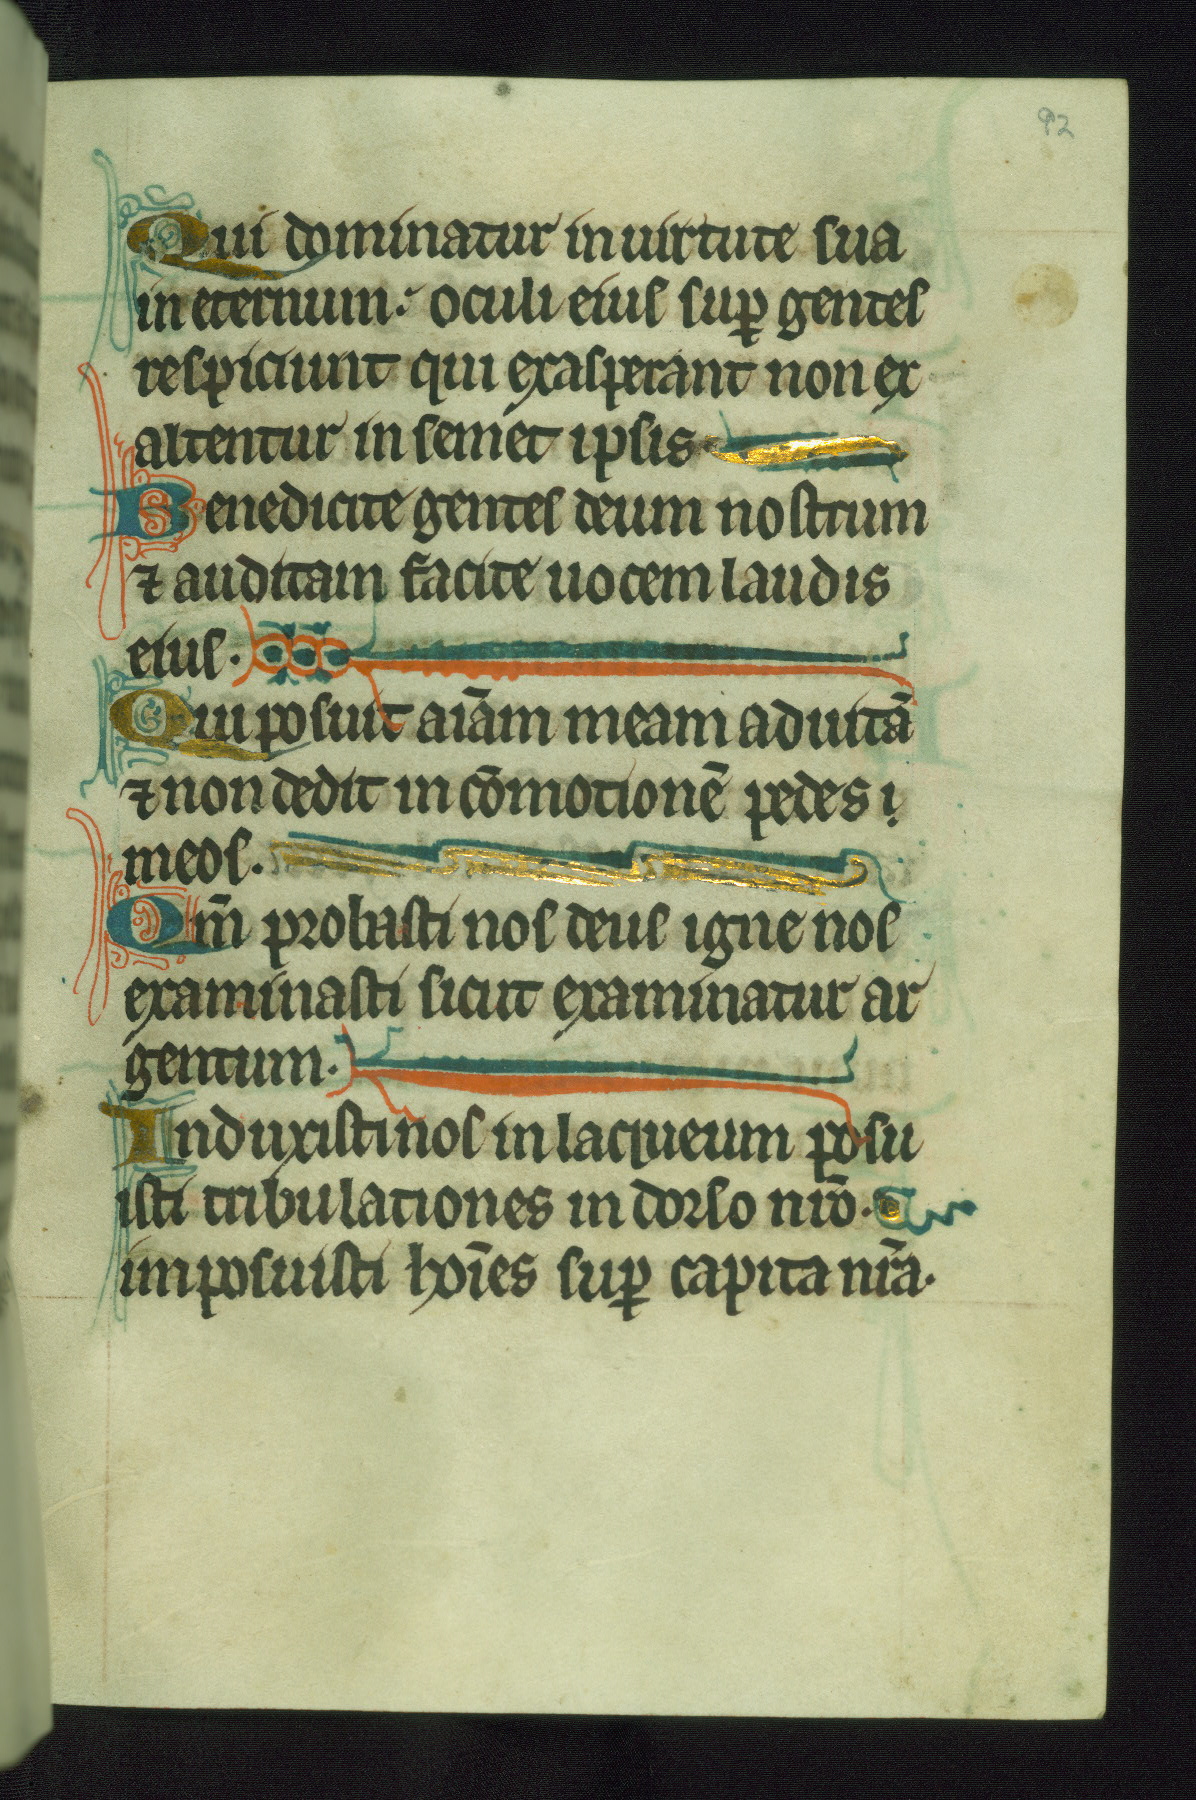 92
Qui dominatur in uirtute sua
in eternum: oculi eius sup gentes
respiciunt qui exasperant non ex
altentur in semet ipsis
Benedicite gentes deum nostrum
⁊ auditam facite uocem laudis
eius.
Qui posuit aīam meam ad uitā
⁊ non dedit in cōmotionē pedes
meos.
Qm̄ probasti nos deus igne nos
examinasti sicut examinatur ar
gentum.
Induxisti nos in laqueum posu
isti tribulationes in dorso nr̄o.
imposuisti hoīes sup capita nr̄a.